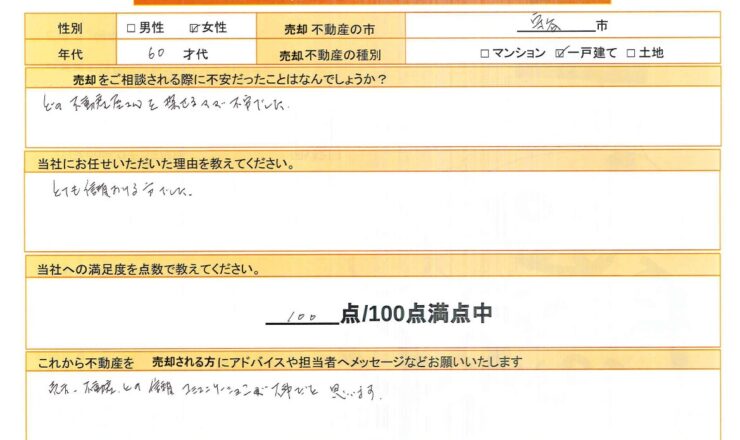 性別 □男性 ☑女性 売却 不動産の市 市
年代 60 才代 売却不動産の種別 □マンション ☑一戸建て □土地
売却をご相談される際に不安だったことはなんでしょうか？
どの不動産屋さんを 不安でした.
当社にお任せいただいた理由を教えてください。
とても信頼おける方でした.
当社への満足度を点数で教えてください。
100 点/100点満点中
これから不動産を 売却される方にアドバイスや担当者へメッセージなどお願いいたします
不動産 との 信頼 コミュニケーションが 大事だと 思います.